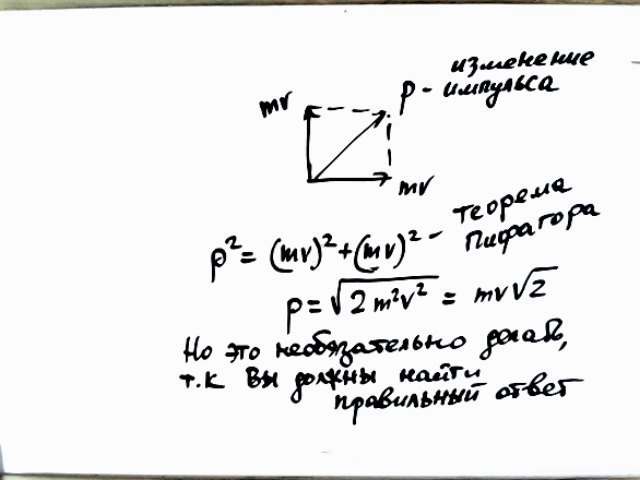 изменение
mv p - импульса
mv
p² = (mv)² + (mv)² - теорема
Пифагора
p = √2m²v² = mv√2
Но это необязательно делать,
т.к Вы должны найти
правильный ответ